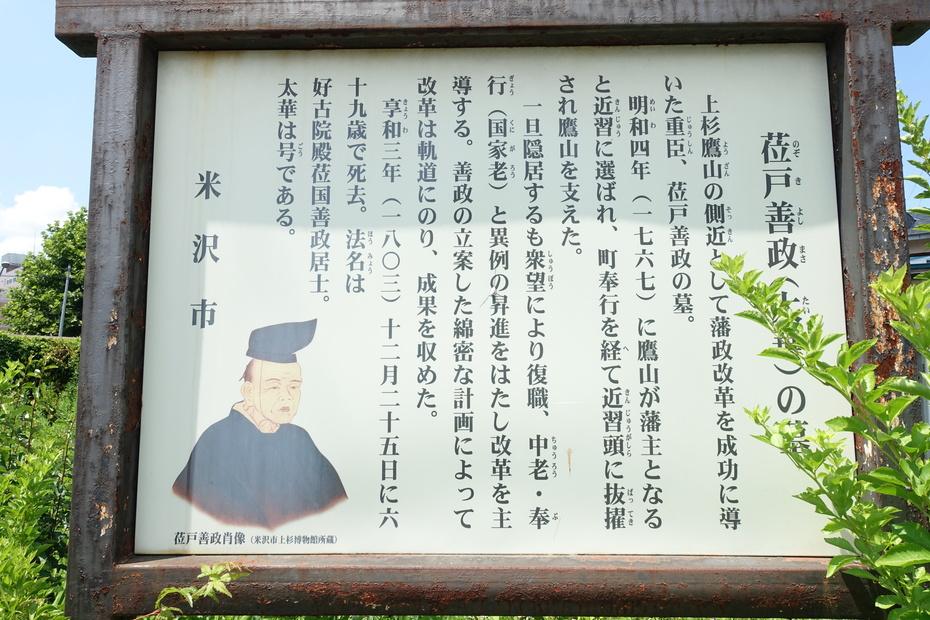 莅戸善政（太華）の墓
上杉鷹山の側近として藩政改革を成功に導
いた重臣、莅戸善政の墓。
明和四年（一七六七）に鷹山が藩主となる
と近習に選ばれ、町奉行を経て近習頭に抜擢
され鷹山を支えた。
一旦隠居するも衆望により復職、中老・奉
行（国家老）と異例の昇進をはたし改革を主
導する。善政の立案した綿密な計画によって
改革は軌道にのり、成果を収めた。
享和三年（一八〇三）十二月二十五日に六
十九歳で死去。法名は
好古院殿莅国善政居士。
太華は号である。
米沢市
莅戸善政肖像（米沢市上杉博物館所蔵）